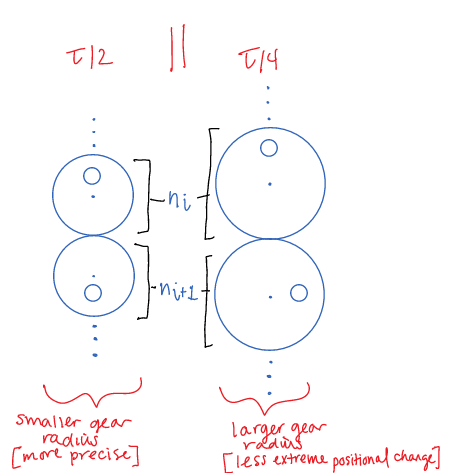 τ/2 || τ/4
n_i
n_{i+1}
smaller gear
radius
[more precise]
larger gear
radius
[less extreme positional change]